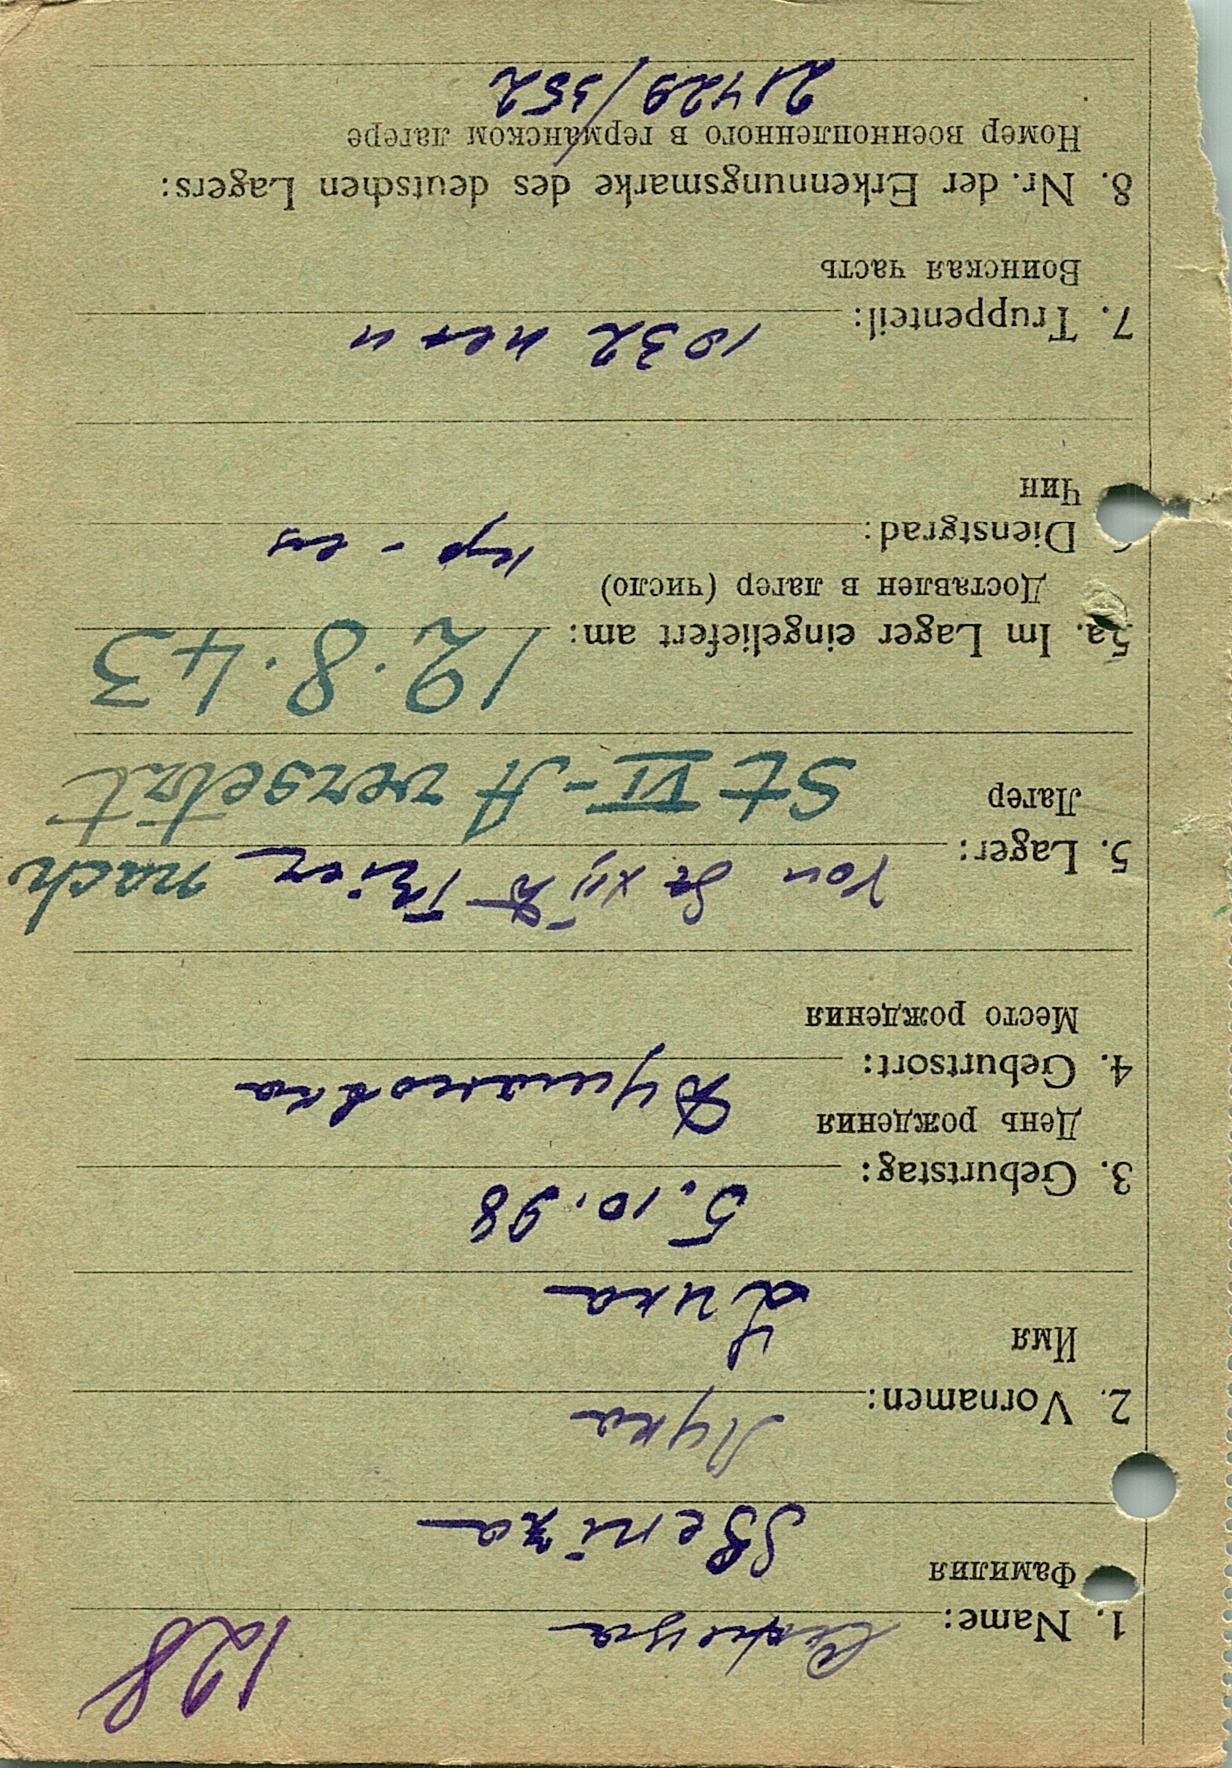 128
1. Name:
Фамилия
2. Vornamen: Лука
Имя
Luka
3. Geburtstag: 5.10.98
День рождения
4. Geburtsort:
Место рождения
5. Lager: Von St XII Trier nach
Лагер St VI-A versetzt
5a. Im Lager eingeliefert am: 12.8.43
Доставлен в лагер (число)
Dienstgrad: кр-ец
Чин
7. Truppenteil: 1032
Воинская часть
8. Nr. der Erkennungsmarke des deutschen Lagers:
Номер военнопленного в германском лагере
21429/352